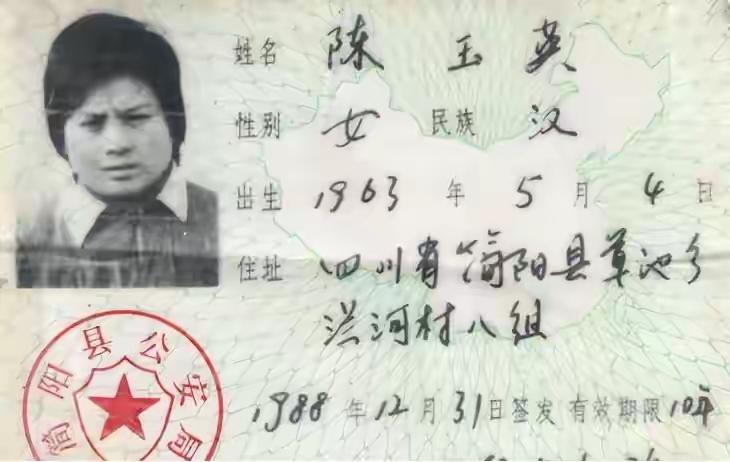 姓名 陈玉英
性别 女 民族 汉
出生 1963年5月4日
住址 四川省简阳县草池乡
洪河村八组
简阳县公安局
1988年12月31日签发 有效期限10年